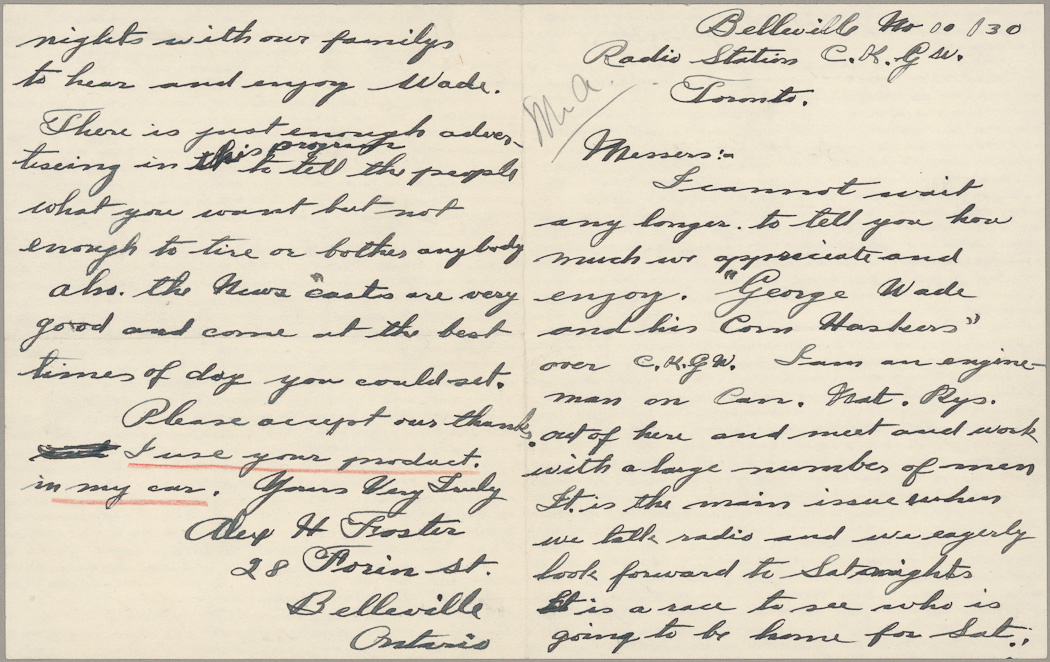 Belleville No 00 / 30
Radio Station C.K.G.W.
Toronto.
M.A.
Messers:-
I cannot wait
any longer. to tell you how
much we appreciate and
enjoy. "George Wade
and his Corn Huskers"
over C.K.G.W. I am an engine-
man on Can. Nat. Rys.
out of here and meet and work
with a large number of men
It is the main issue when
we talk radio and we eagerly
look forward to Sat nights
It is a race to see who is
going to be home for Sat.
nights with our familys
to hear and enjoy Wade.
There is just enough adver-
tiseing in this program to tell the people
what you want but not
enough to tire or bother anybody
also. the News "casts are very
good and come at the best
times of day you could set.
Please accept our thanks.
I use your product.
in my car. Yours Very Truly
Alex H Foster
28 Forin St.
Belleville
Ontario